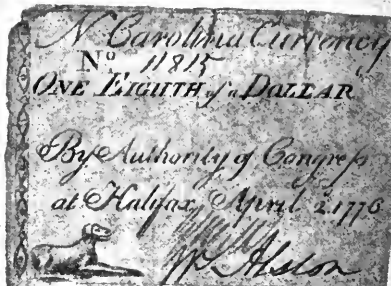 N Carolina Currency
No 11815
ONE EIGHTH of a DOLLAR
By Authority of Congreſs
at Halifax, April 2. 1776
W Alston